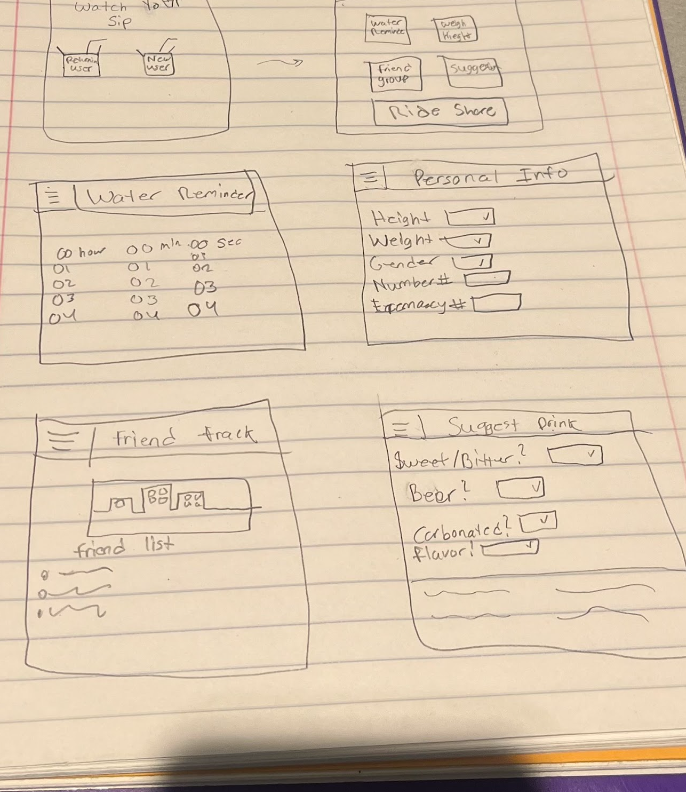 Watch Your
Sip
Return
user
New
user
Water
Reminder
Weigh
Height
friend
group
Suggestion
Ride Share
Water Reminder
00 hour 00 min 00 sec
01 01 01
02 02 02
03 03 03
04 04 04
Personal Info
Height
Weight
Gender
Number#
friend track
friend list
Suggest Drink
Sweet/Bitter?
Beer?
Carbonated?
flavor?